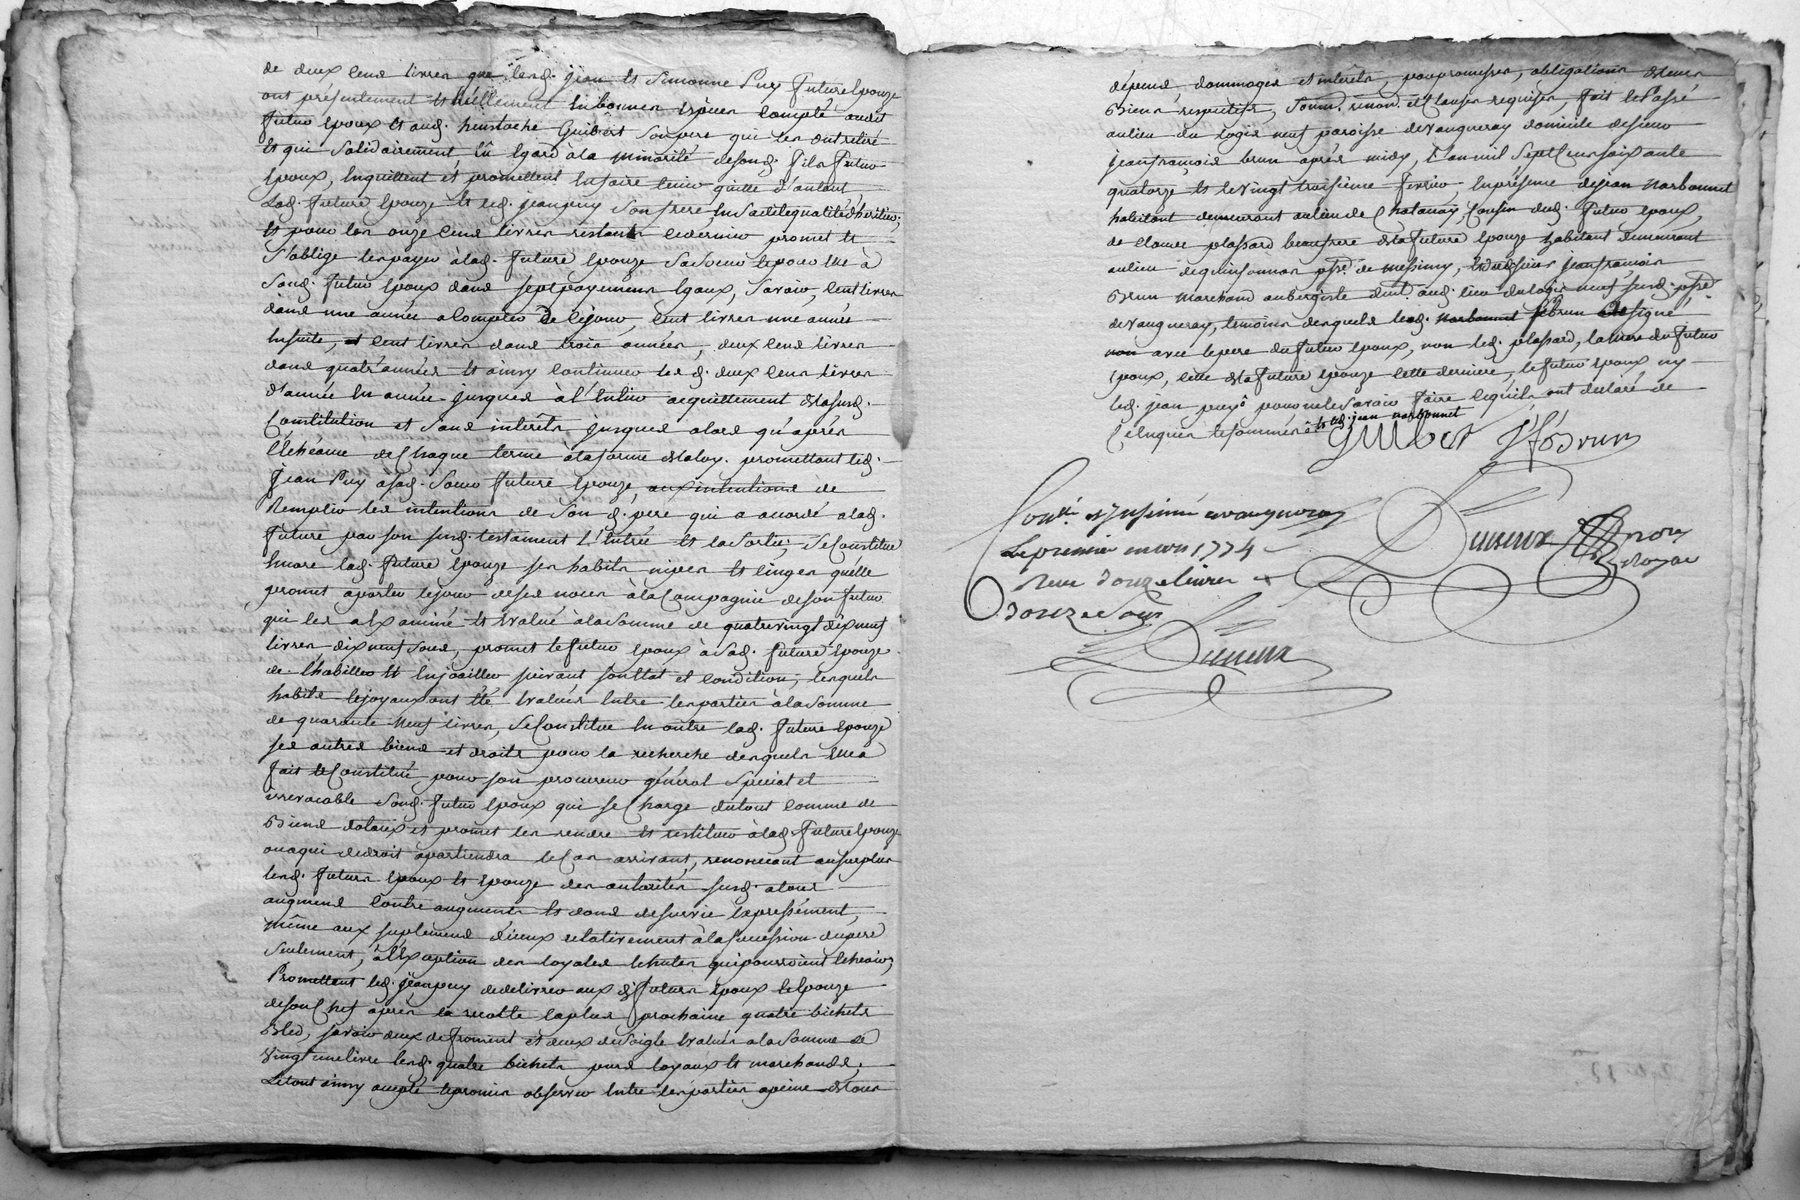 de deux cens livres que lesd. jean et Simonne Puy future Epouze
ont présentement et réellement en bonnes espèces compté audit
futur Epoux et aud. heustache Guibert son pere qui les ont retiré
et qui solidairement, eû Egard à la minorité desond. fils futur
Epoux, Enquittent et promettent En faire tenir quitte d'autant
Lad. future Epouze et led. jean puy son frere En sadite qualité d'heritier;
Et pour les onze Cens livres restant ce dernier promet et
S'oblige les payer à lad. future Epouze sa soeur et pour Elle à
Sond. futur Epoux dans sept payements Egaux, Savoir, Cent livres
dans une année a Compter de ce jour, Cent livres une année
Ensuite, et Cent livres dans trois années, deux Cens livres
dans quatr'années et ainsy continuer lesd. deux Cens livres
d'année En année jusques à l'Entier acquittement de la susd.
Constitution et sans intérêts jusques alors qu'après
l'échéance de Chaque terme à la forme de la loy. promettant led.
Jean Puy à sad. Soeur future Epouze, aux intentions de
Remplir les intentions de Son d. père qui a accordé a lad.
future par son susd. testament l'Entrée et la sortie; Se Constitue
Encore lad. future Epouze ses habits nipes et linges qu'elle
promet aporter le jour de ses noces à la Compagnie de son futur
qui les a Examiné et Evalué à la Somme de quatrevingt dix neuf
livres dix neuf sous, promet le futur Epoux à sad. future Epouze
de l'habiller et Enjoailler suivant son Etat et Condition, lesquels
habits et joyaux ont Eté Evalués Entre les parties à la Somme
de quarante neuf livres, Se Constitue En outre lad. future Epouze
ses autres biens et droits pour la recherche desquels Elle a
fait et Constitué pour son procureur général Special et
irrevocable Sond. futur Epoux qui se Charge du tout Comme de
Biens dotaux et promet les rendre et restituer à lad. future Epouze
ou a qui de droit apartiendra le Cas arrivant, renonceant au surplus
lesd. futurs Epoux et Epouze des autorités susd. a tous
augmens Contre augments et dons de survie Expressément,
même aux suplémens d'iceux relativement à la sucession du pere
Seulement, à l'Exception des loyales Echutes qui pourroient Echeoir;
Promettant led. jean puy de delivrer aux d. futurs Epoux et Epouze
de son Chef après la recolte la plus prochaine quatre bichets
Bled, savoir deux de froment et deux de Soigle Evalués à la Somme de
Vingt une livre lesd. quatre bichets purs loyaux et marchands;
Le tout ainsy accepté et promis observer Entre les parties apeine de tous
dépens, dommages et intérêts, par promesses, obligations de leurs
Biens respectifs, Soum. renon. et Clauses requises, fait et Passé
au lieu du logis neuf paroisse de Vaugneray domicile de sieur
jean françois brun après midy, L'an mil Sept Cens soixante
quatorze et le Vingt troisième fevrier En présence de jean Narbonnet
habitant demeurant au lieu de Chatanay, Cousin dud. futur Epoux,
de Claude plassard beaufrere de la future Epouze habitant demeurant
au lieu de quinsonnas psse. de messimy, et de sieur jean françois
Brun marchand aubergiste demt. aud. lieu du logis neuf susd. psse.
de Vaugneray, temoins desquels led. Narbonnet Sr. brun a Signé
non avec le pere du futur Epoux, non led. plassard, la mere du futur
Epoux, celle de la future Epouze cette derniere, le futur Epoux ny
led. jean puy pour ne le savoir faire Ce qu'ils ont déclaré de
Ce Enquis et sommés et led. jean narbonnet
Guibert J F Brun
Contlé. et Insinué a vaugneray
Le premier mars 1774
Reçu douze livres
douze sous
Duneuve
Dumeure Nore
royal